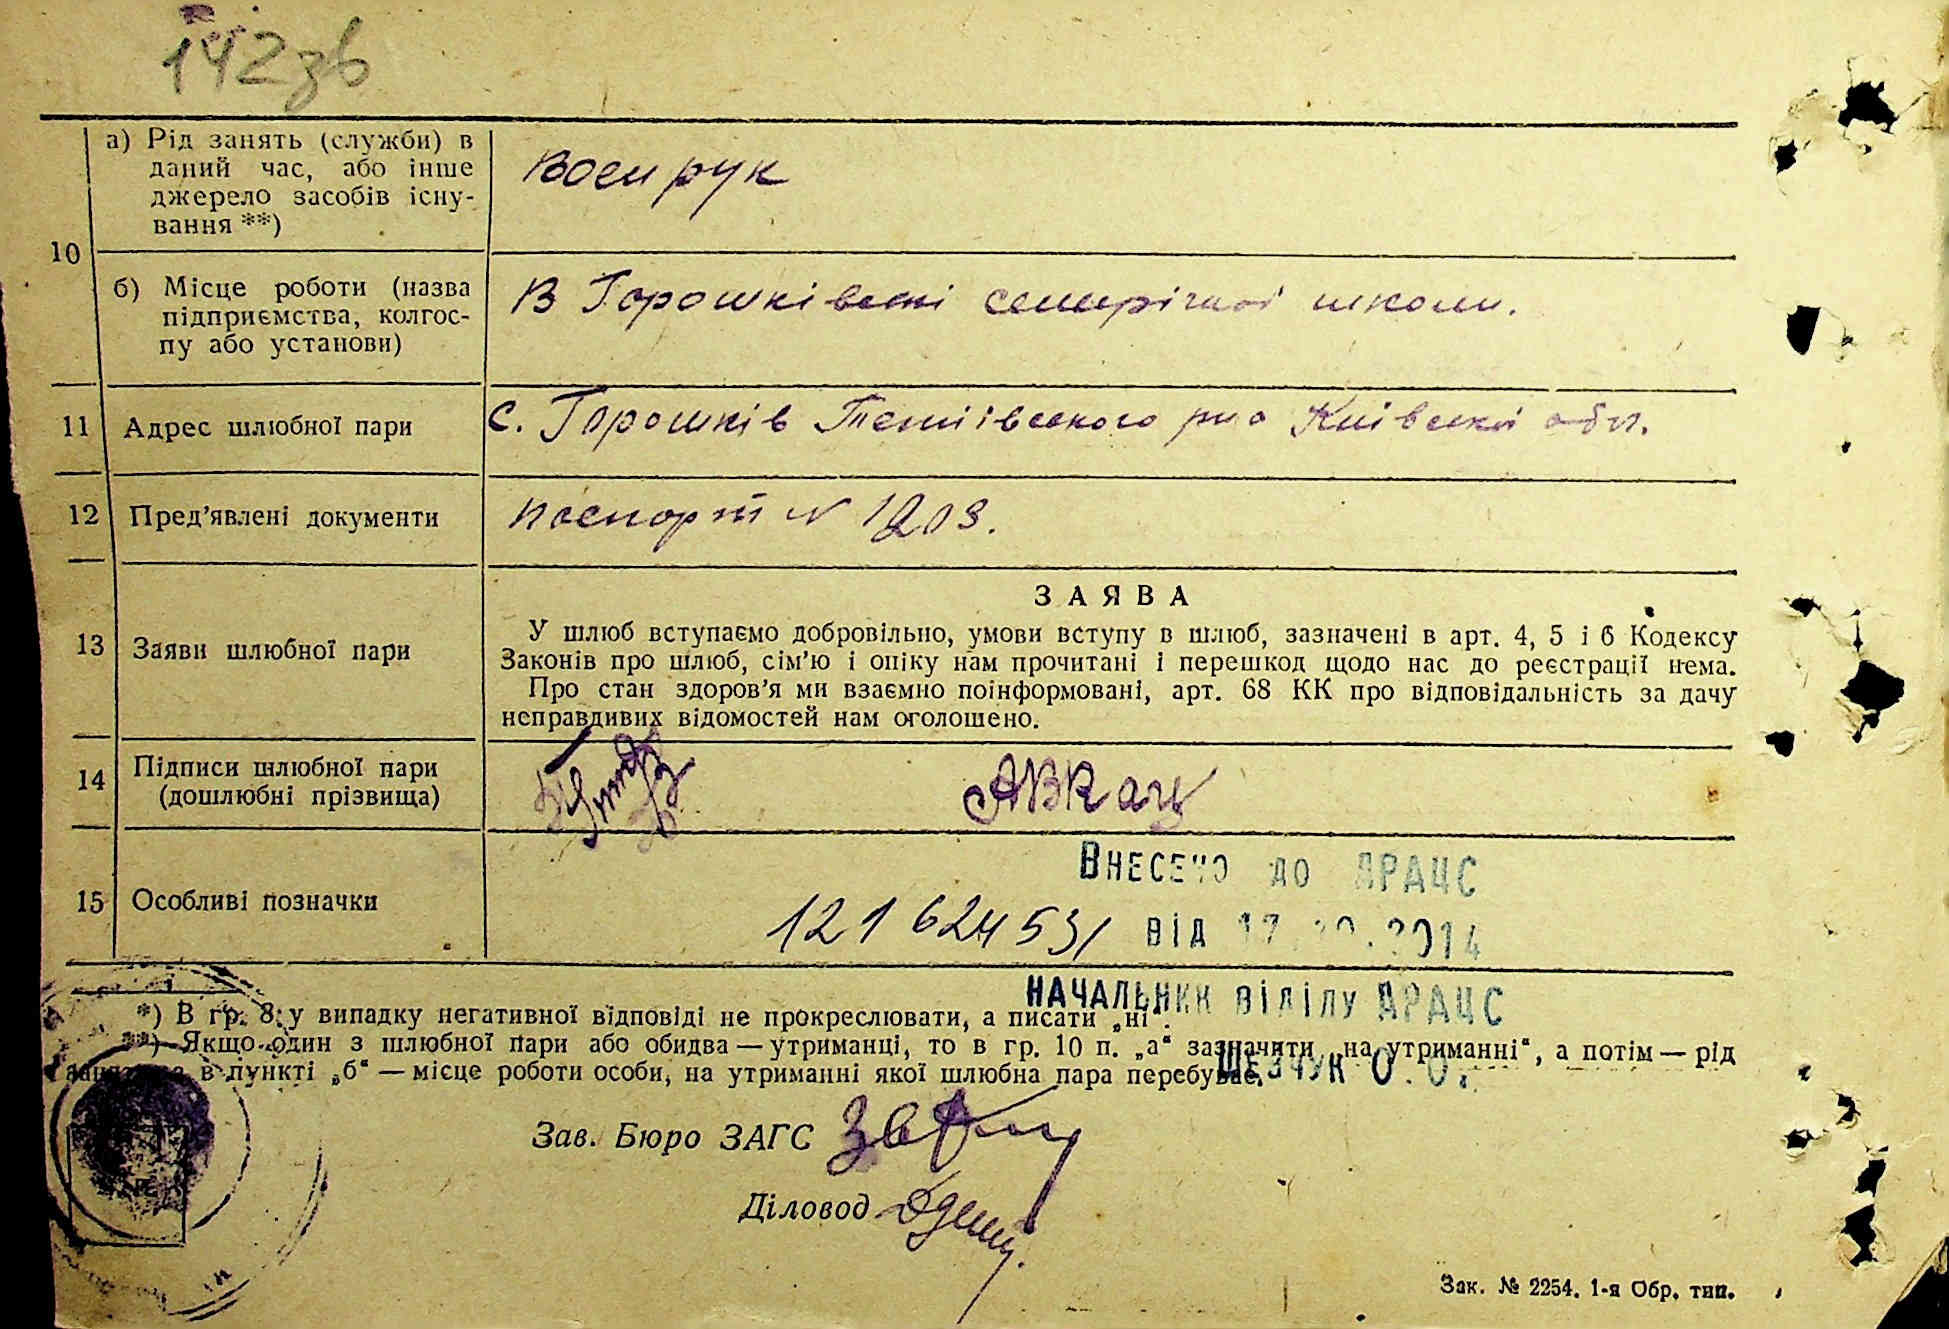 142зв
а) Рід занять (служби) в
даний час, або інше
джерело засобів існу-
вання **)
Воєнрук
10
б) Місце роботи (назва
підприємства, колгос-
пу або установи)
В Горошківскі семирічної школи.
11 Адрес шлюбної пари
с. Горошків Тетіївського р-но Київскої обл.
12 Пред'явлені документи
паспорт N 1203.
13 Заяви шлюбної пари
ЗАЯВА
У шлюб вступаємо добровільно, умови вступу в шлюб, зазначені в арт. 4, 5 і 6 Кодексу
Законів про шлюб, сім'ю і опіку нам прочитані і перешкод щодо нас до реєстрації нема.
Про стан здоров'я ми взаємно поінформовані, арт. 68 КК про відповідальність за дачу
неправдивих відомостей нам оголошено.
14 Підписи шлюбної пари
(дошлюбні прізвища)
АВКац
15 Особливі позначки
Внесено до ДРАЦС
12162453/ від 17. .2014
*) В гр. 8 у випадку негативної відповіді не прокреслювати, а писати „ні".
НАЧАЛЬНИК ВІДІЛУ ДРАЦС
**) Якщо один з шлюбної пари або обидва — утриманці, то в гр. 10 п. „а" зазначити „на утриманні", а потім — рід
в пункті „б" — місце роботи особи, на утриманні якої шлюбна пара перебуває.
О.О.
Зав. Бюро ЗАГС
Діловод
Зак. № 2254. 1-я Обр. тип.